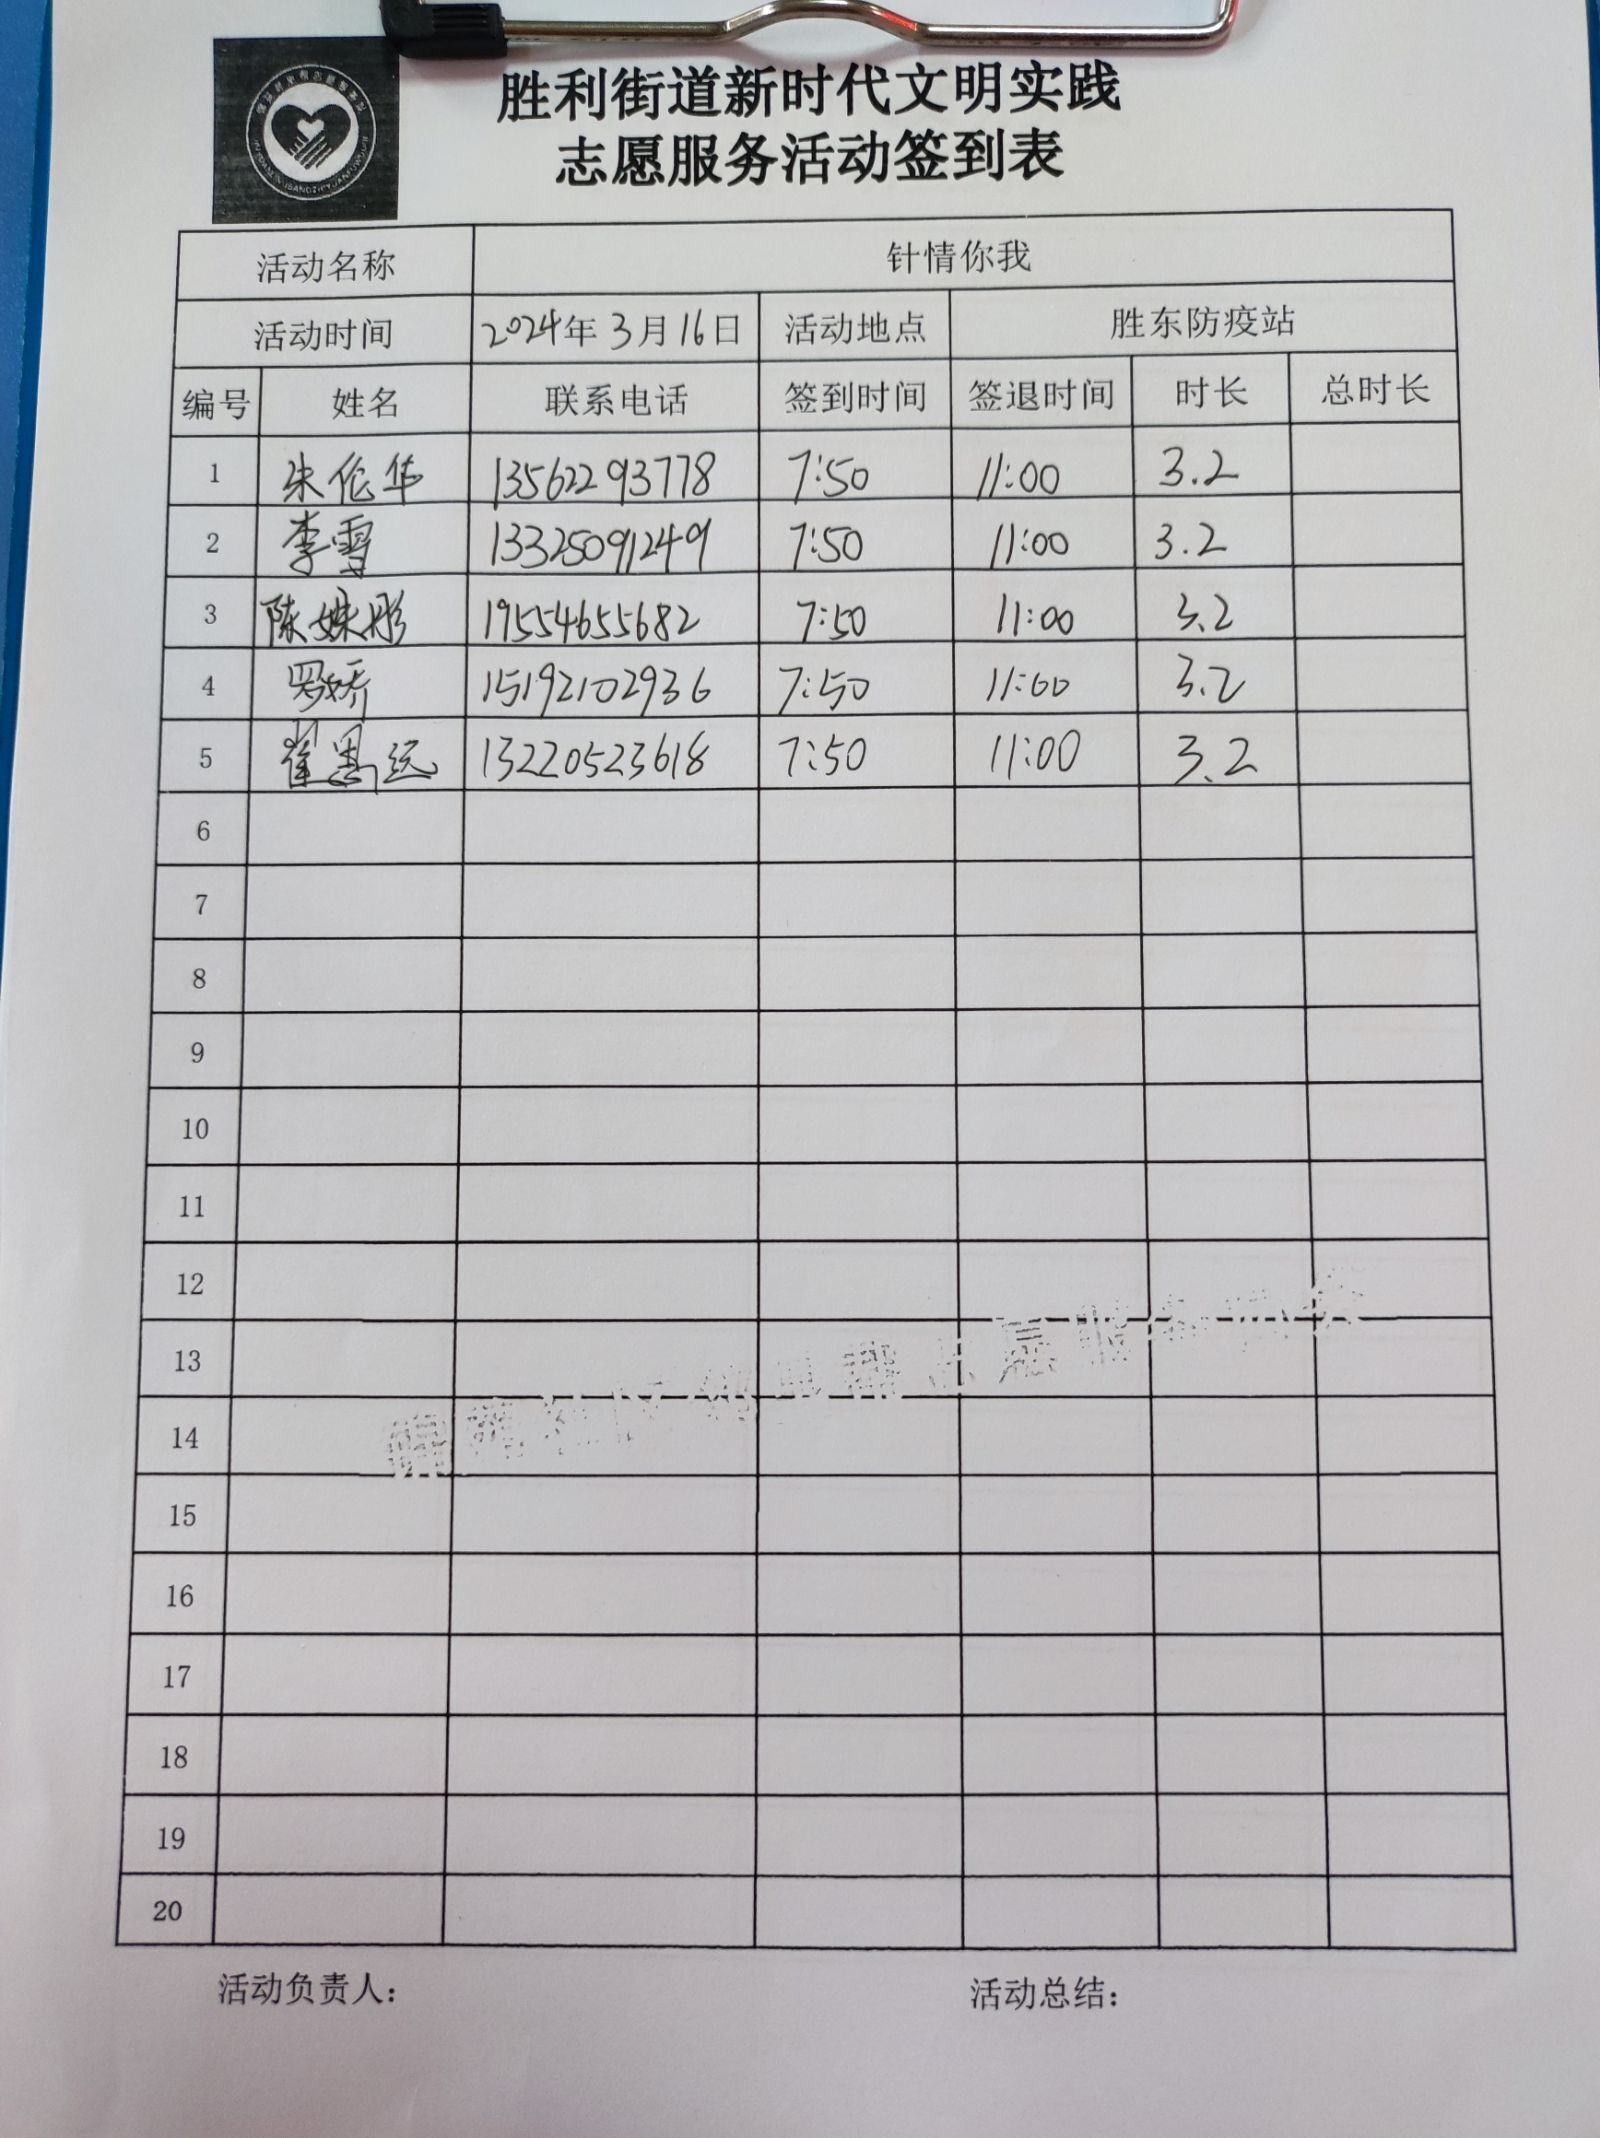 胜利街道新时代文明实践
志愿服务活动签到表
活动名称 针情你我
活动时间 2024年3月16日 活动地点 胜东防疫站
编号 姓名 联系电话 签到时间 签退时间 时长 总时长
1 朱伦华 13562293778 7:50 11:00 3.2
2 李雪 13325091249 7:50 11:00 3.2
3 陈姝彤 19554655682 7:50 11:00 3.2
4 罗娇 15192102936 7:50 11:00 3.2
5 崔 远 13220523618 7:50 11:00 3.2
6
7
8
9
10
11
12
13
14
15
16
17
18
19
20
活动负责人: 活动总结: